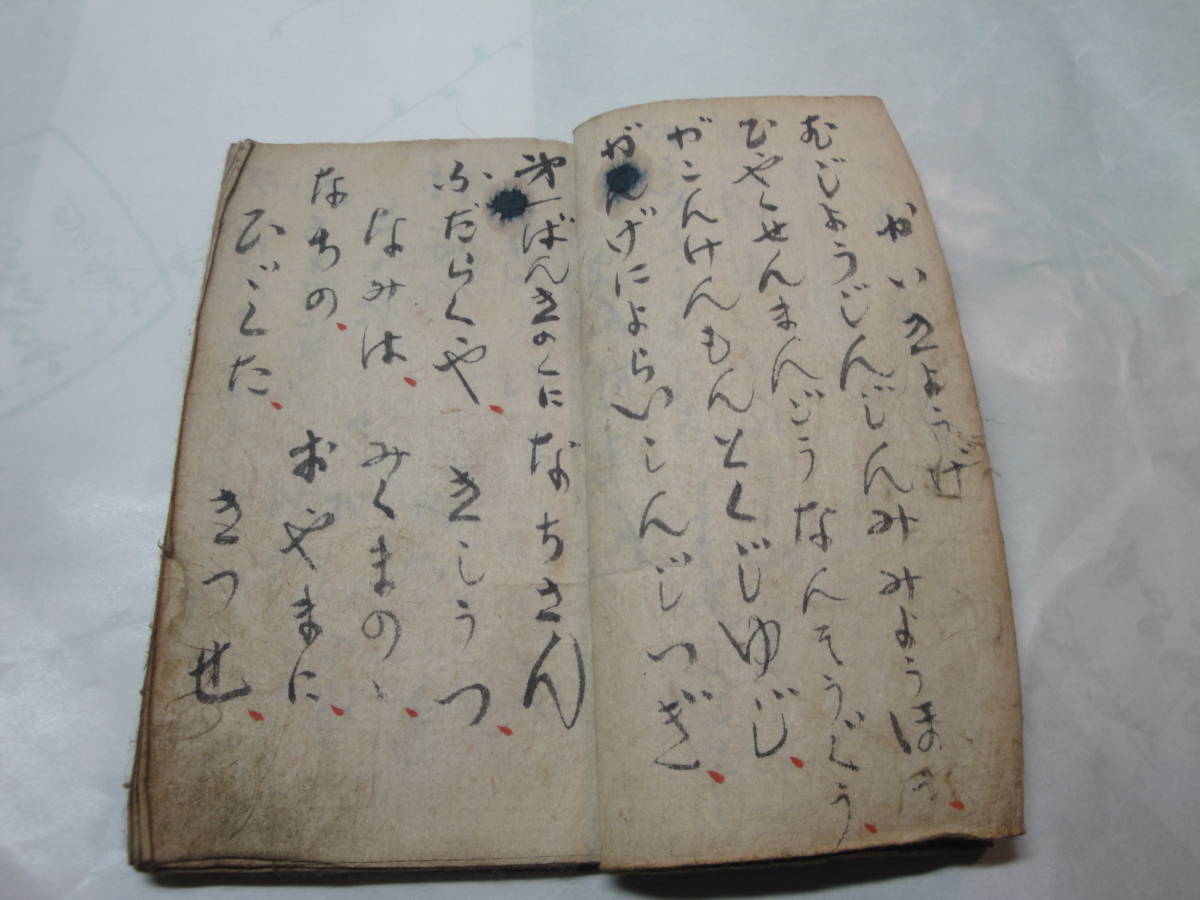 かいきようげ
むじようじんじんみみようほう
ひやくせんまんごうなんそうぐう
がこんけんもんとくじゆじ
がんげによらいしんじつぎ
第一ばんきのくになちさん
ふだらくや きしうつ
なみは みくまの
なちの おやまに
ひゞくた きつせ